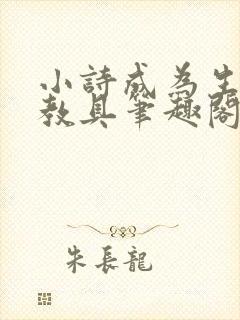 小詩成為生
教具筆趣閣
朱長龍